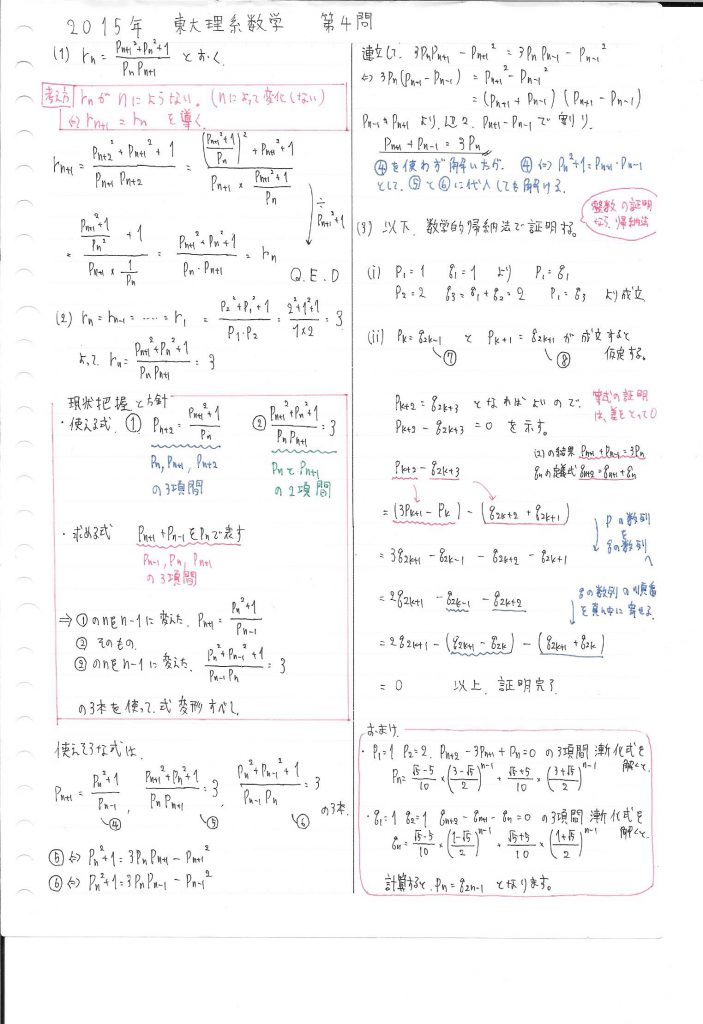 2015年 東大理系数学 第4問
(1) r_n = (P_{n+1}²+P_n²+1)/(P_n P_{n+1}) とおく.
考え方 r_nがnによらない。(nによって変化しない)
⇔ r_{n+1} = r_n を導く.
r_{n+1} = (P_{n+2}²+P_{n+1}²+1)/(P_{n+1}P_{n+2}) = (((P_{n+1}²+1)/P_n)²+P_{n+1}²+1)/(P_{n+1}×(P_{n+1}²+1)/P_n)
÷P_{n+1}²+1
= ((P_{n+1}²+1)/P_n²+1)/(P_{n+1}×1/P_n) = (P_{n+1}²+P_n²+1)/(P_n・P_{n+1}) = r_n
Q.E.D
(2) r_n = r_{n-1} = ‥‥ = r_1 = (P_2²+P_1²+1)/(P_1・P_2) = (2²+1+1)/(1×2) = 3
よって r_n = (P_{n+1}²+P_n²+1)/(P_n P_{n+1}) = 3
現状把握と方針
・使える式. ① P_{n+2} = (P_{n+1}²+1)/P_n ② (P_{n+1}²+P_n²+1)/(P_n P_{n+1}) = 3
P_n, P_{n+1}, P_{n+2} の3項間
P_nとP_{n+1} の2項間
・求める式 P_{n+1}+P_{n-1}をP_nで表す
P_{n-1}, P_n, P_{n+1} の3項間
⇒ ①のnをn-1に変えた. P_{n+1} = (P_n²+1)/P_{n-1}
② そのもの.
②のnをn-1に変えた. (P_n²+P_{n-1}²+1)/(P_{n-1}P_n) = 3
の3本を使って. 式変形すべし.
使えそうな式は.
P_{n+1} = (P_n²+1)/P_{n-1}, (P_{n+1}²+P_n²+1)/(P_n P_{n+1}) = 3, (P_n²+P_{n-1}²+1)/(P_{n-1}P_n) = 3 の3本.
④ ⑤ ⑥
⑤ ⇔ P_n²+1 = 3P_nP_{n+1} - P_{n+1}²
⑥ ⇔ P_n²+1 = 3P_nP_{n-1} - P_{n-1}²
連立して. 3P_nP_{n+1} - P_{n+1}² = 3P_nP_{n-1} - P_{n-1}²
⇔ 3P_n(P_{n+1} - P_{n-1}) = P_{n+1}² - P_{n-1}²
= (P_{n+1} + P_{n-1})(P_{n+1} - P_{n-1})
P_{n-1}≠P_{n+1} より. 辺々. P_{n+1}-P_{n-1}で割り.
P_{n+1} + P_{n-1} = 3P_n
④を使わず解いたが. ④⇔P_n²+1=P_{n+1}・P_{n-1}
として. ⑤と⑥に代入しても解ける.
整数の証明なら、帰納法
(3) 以下. 数学的帰納法で証明する。
(i) P_1 = 1 q_1 = 1 より P_1 = q_1
P_2 = 2 q_3 = q_1+q_2 = 2 P_1 = q_3 より成立
(ii) P_k = q_{2k-1} と P_{k+1} = q_{2k+1} が成立すると仮定する。
⑦ ⑧
P_{k+2} = q_{2k+3} となればよいので.
P_{k+2} - q_{2k+3} = 0 を示す。
等式の証明は、差をとって0
(2)の結果 P_{n+1}+P_{n-1}=3P_n
q_nの定義式 q_{n+2}=q_{n+1}+q_n
P_{k+2} - q_{2k+3}
= (3P_{k+1} - P_k) - (q_{2k+2} + q_{2k+1})
= 3q_{2k+1} - q_{2k-1} - q_{2k+2} - q_{2k+1}
Pの数列をqの数列へ
= 2q_{2k+1} - q_{2k-1} - q_{2k+2}
qの数列の順番を真ん中に寄せる.
= 2q_{2k+1} - (q_{2k+1} - q_{2k}) - (q_{2k+1} + q_{2k})
= 0 以上. 証明完了.
おまけ.
・P_1=1 P_2=2. P_{n+2} - 3P_{n+1} + P_n = 0 の3項間漸化式を解くと.
P_n = (√5-5)/10 × ((3-√5)/2)^{n-1} + (√5+5)/10 × ((3+√5)/2)^{n-1}
・q_1=1 q_2=1 q_{n+2} - q_{n+1} - q_n = 0 の3項間漸化式を解くと.
q_n = (√5-5)/10 × ((1-√5)/2)^{n-1} + (√5+5)/10 × ((1+√5)/2)^{n-1}
計算すると. P_n = q_{2n-1} となります。